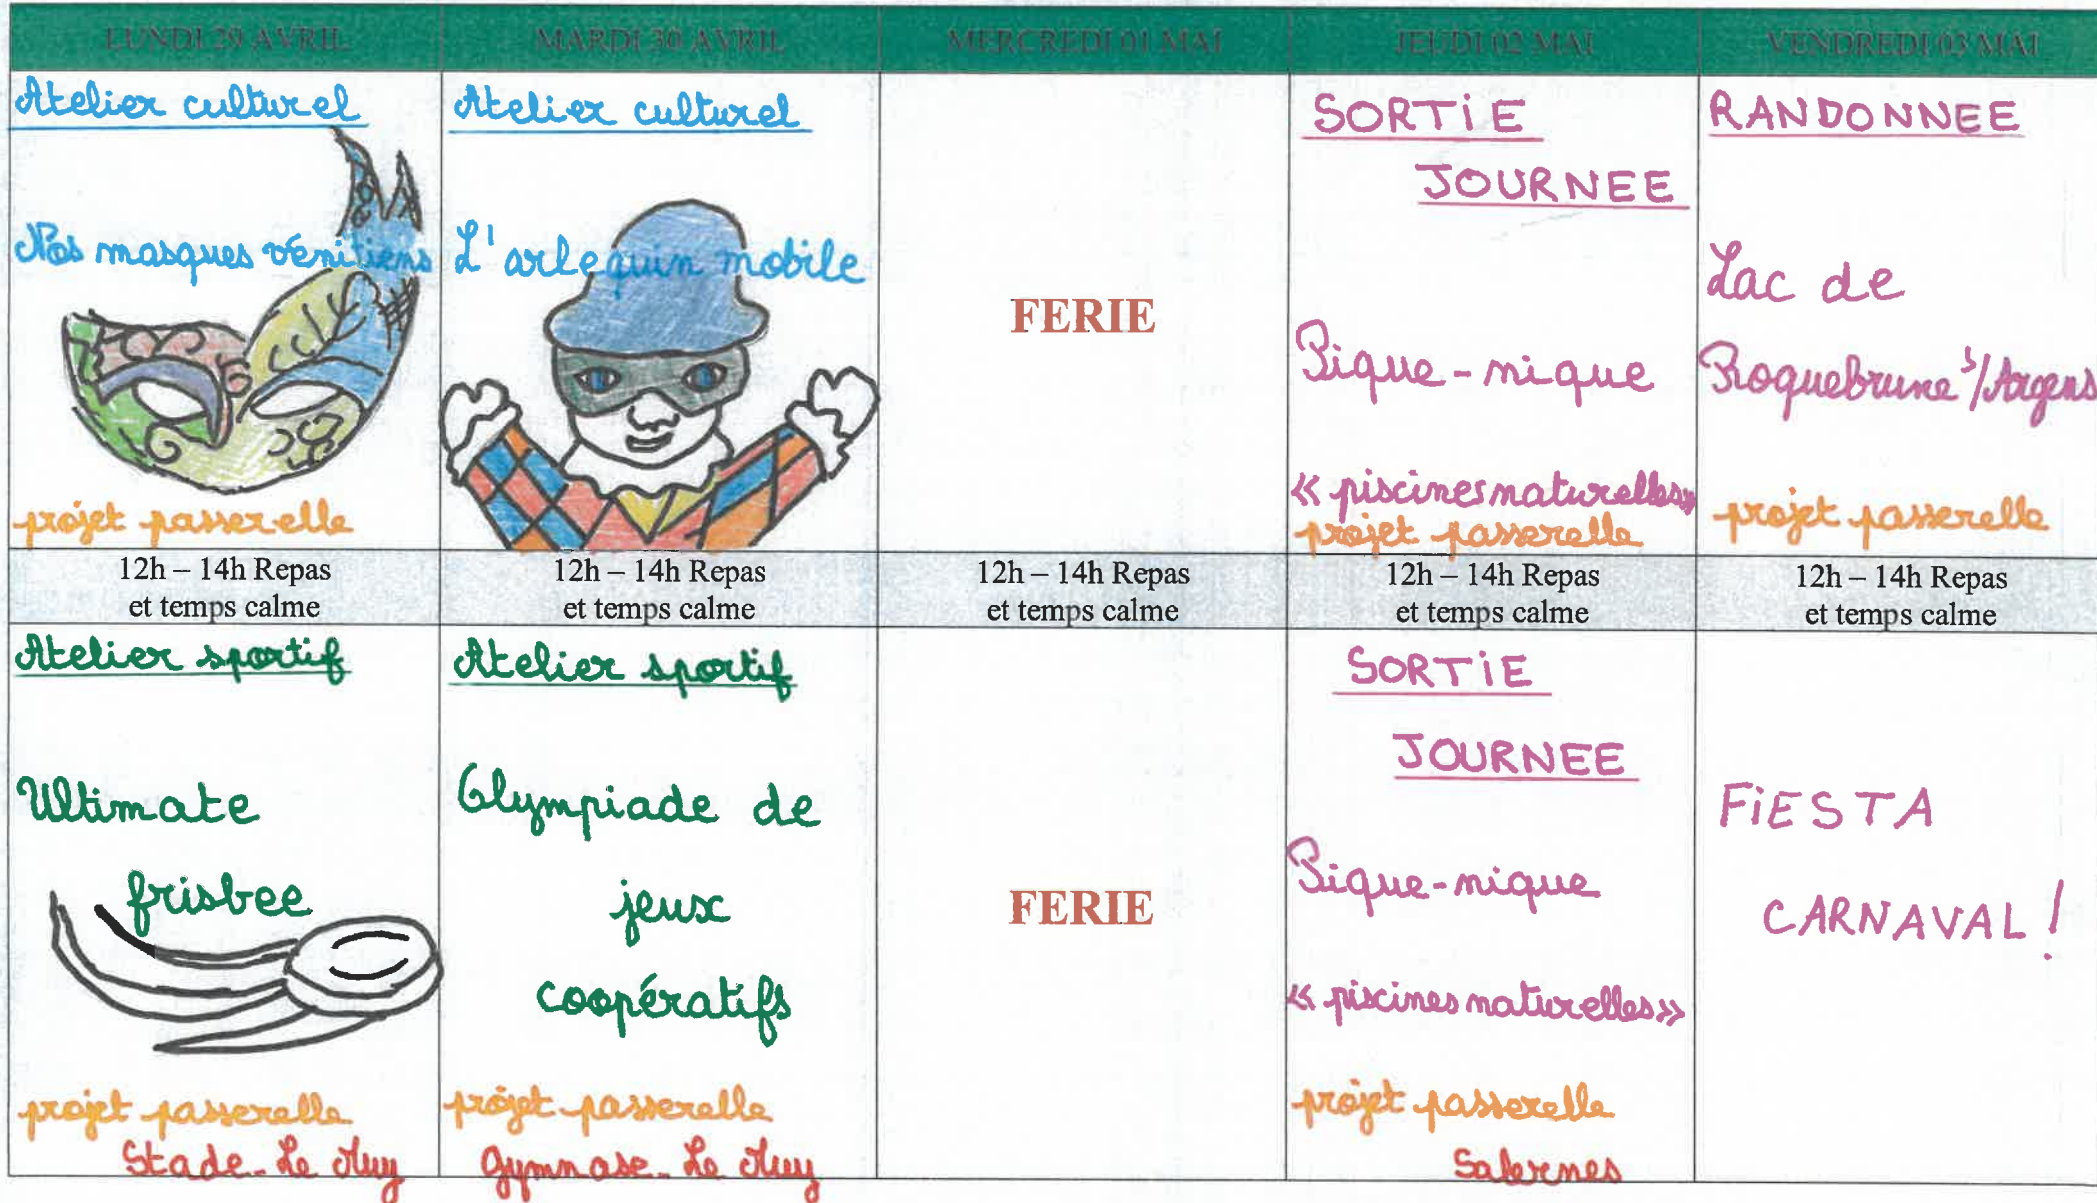 LUNDI 29 AVRIL
MARDI 30 AVRIL
MERCREDI 01 MAI
JEUDI 02 MAI
VENDREDI 03 MAI
Atelier culturel
Nos masques vénitiens
projet passerelle
Atelier culturel
L'arlequin mobile
FERIE
SORTiE
JOURNEE
Pique-nique
« piscines naturelles »
projet passerelle
RANDONNEE
Lac de
Roquebrune s/Argens
projet passerelle
12h – 14h Repas
et temps calme
12h – 14h Repas
et temps calme
12h – 14h Repas
et temps calme
12h – 14h Repas
et temps calme
12h – 14h Repas
et temps calme
Atelier sportif
Ultimate
frisbee
projet passerelle
Stade - Le Muy
Atelier sportif
Olympiade de
jeux
coopératifs
projet passerelle
Gymnase - Le Muy
FERIE
SORTiE
JOURNEE
Pique-nique
« piscines naturelles »
projet passerelle
Salernes
FiESTA
CARNAVAL !